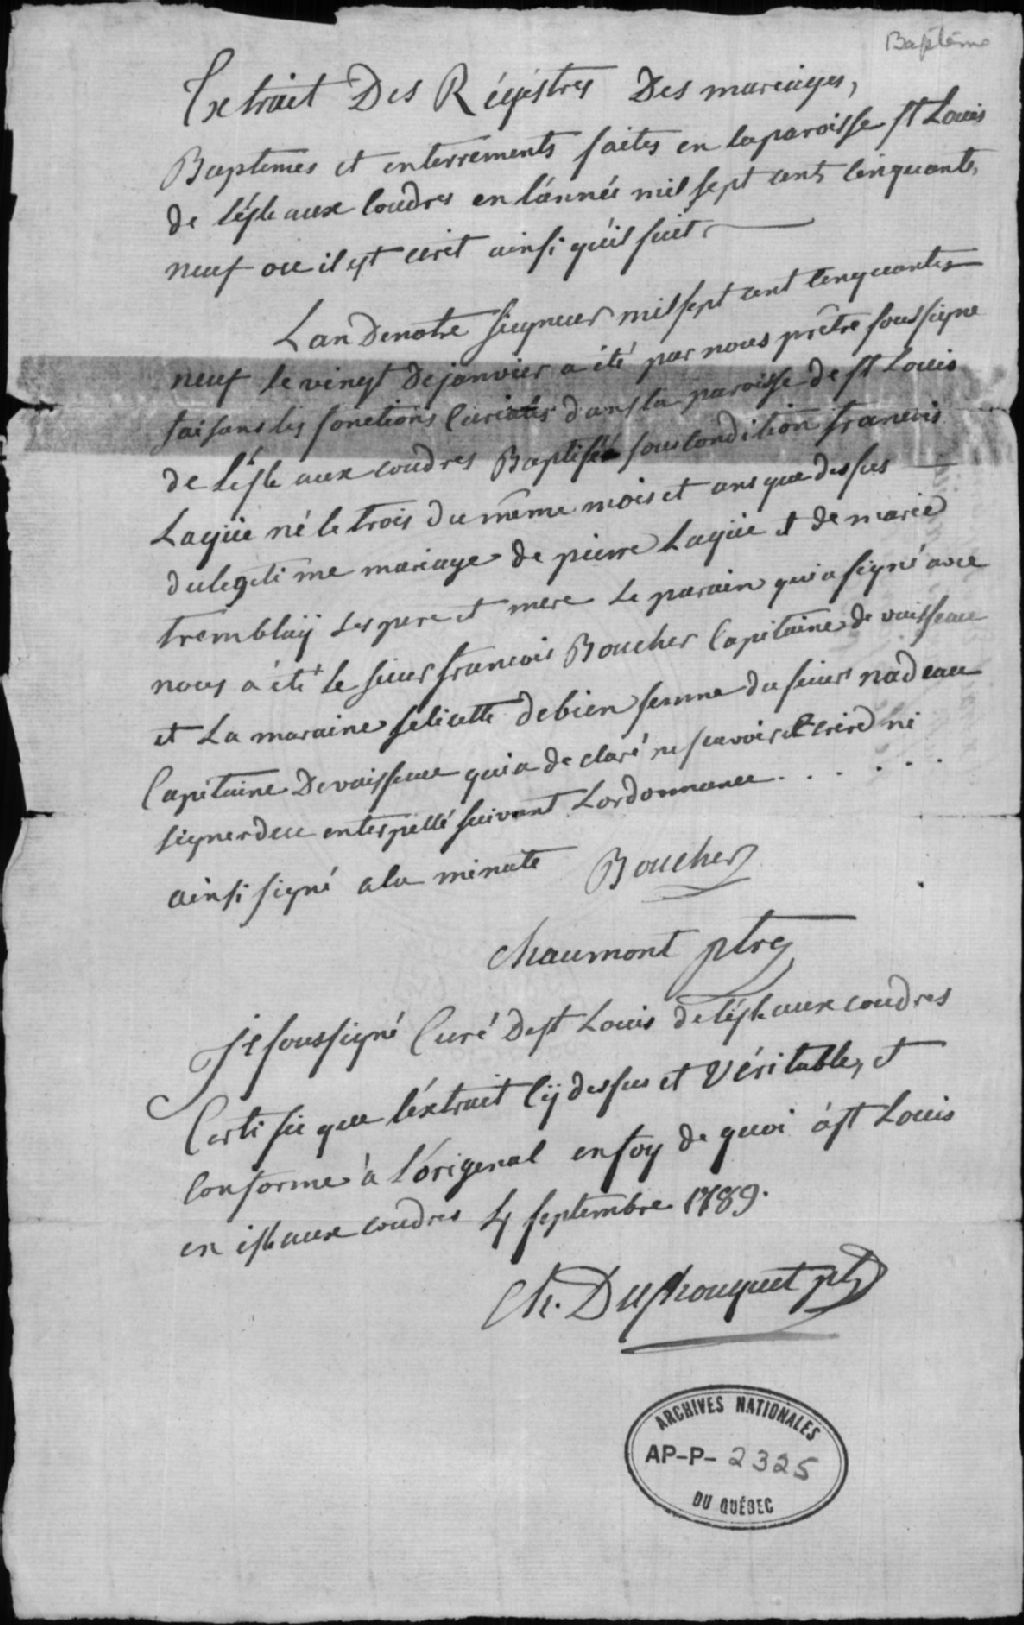 Baptême
Extrait Des Régistres Des mariages,
Baptemes et enterrements faites en laparoisse st Louis
de l'isle aux Coudres en l'année mil sept cent Cinquante
neuf ou il est ecrit ainsi quil suit.
Lan Denotre Seigneur mil sept cent Cinquante
neuf le vingt de janvier a été par nous prêtre soussigne
faisans les fonctions Curiales dans la paroisse de st Louis
de L'isle aux coudres Baptisé sous condition francois
Lagüe né le trois du même mois et ans que dessus
du legiti me mariage de pierre Lagüe et de marie
tremblaÿ Les pere et mere Le parain qui a signé avec
nous a été le sieur francois Boucher Capitaine de vaisseau
et La maraine felicitté debien femme du sieur nadeau
Capitaine De vaisseau qui a de claré ne scavoir Ecrire ni
signer de ce enterpellé suivant Lordonnance . . . . . .
ainsi signé a la minute Boucher
Chaumont ptre
Je soussigné Curé De st Louis de l'isle aux coudres
Certi fie que l'éxtrait Cÿ dessus et Véritable, et
Conforme à l'origenal en foy de quoi à st Louis
en isle aux coudres 4 septembre 1789.
Ch. Dufrouquet ptr
ARCHIVES NATIONALES
AP-P- 2325
DU QUÉBEC